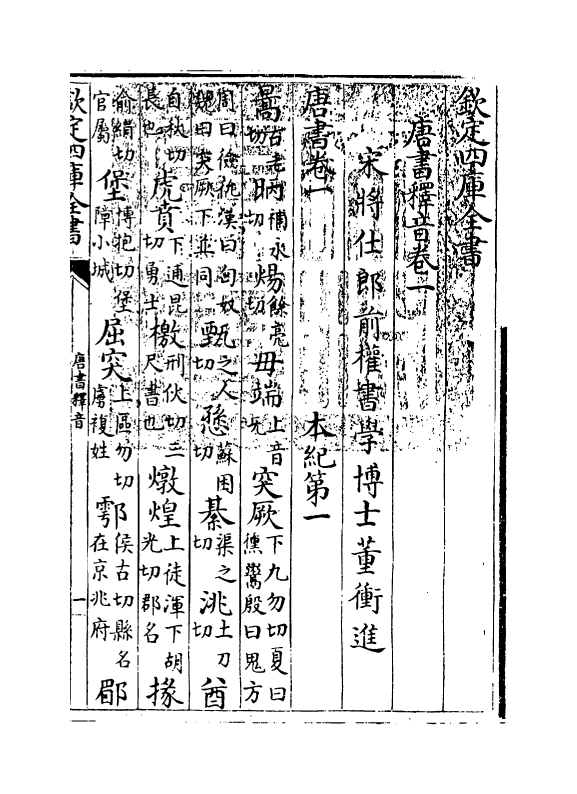 欽定四庫全書
唐書釋音卷一
宋將仕郎前權書學博士董衝進
唐書卷一 本紀第一
暠古老切昞補永切煬餘亮切毋端上音无突厥下九勿切夏曰獯鬻殷曰鬼方
周曰獫狁漢曰匈奴魏曰突厥下並同甄之人切愻蘇困切綦渠之切洮土刀切酋
自秋切長也虎賁下通昆切勇士檄刑伙切三尺書也燉煌上徒渾下胡光切郡名掾
俞絹切官屬堡博抱切堡障小城屈突上區勿切虜複姓鄠侯古切縣名在京兆府郿
欽定四庫全書
唐書釋音
一